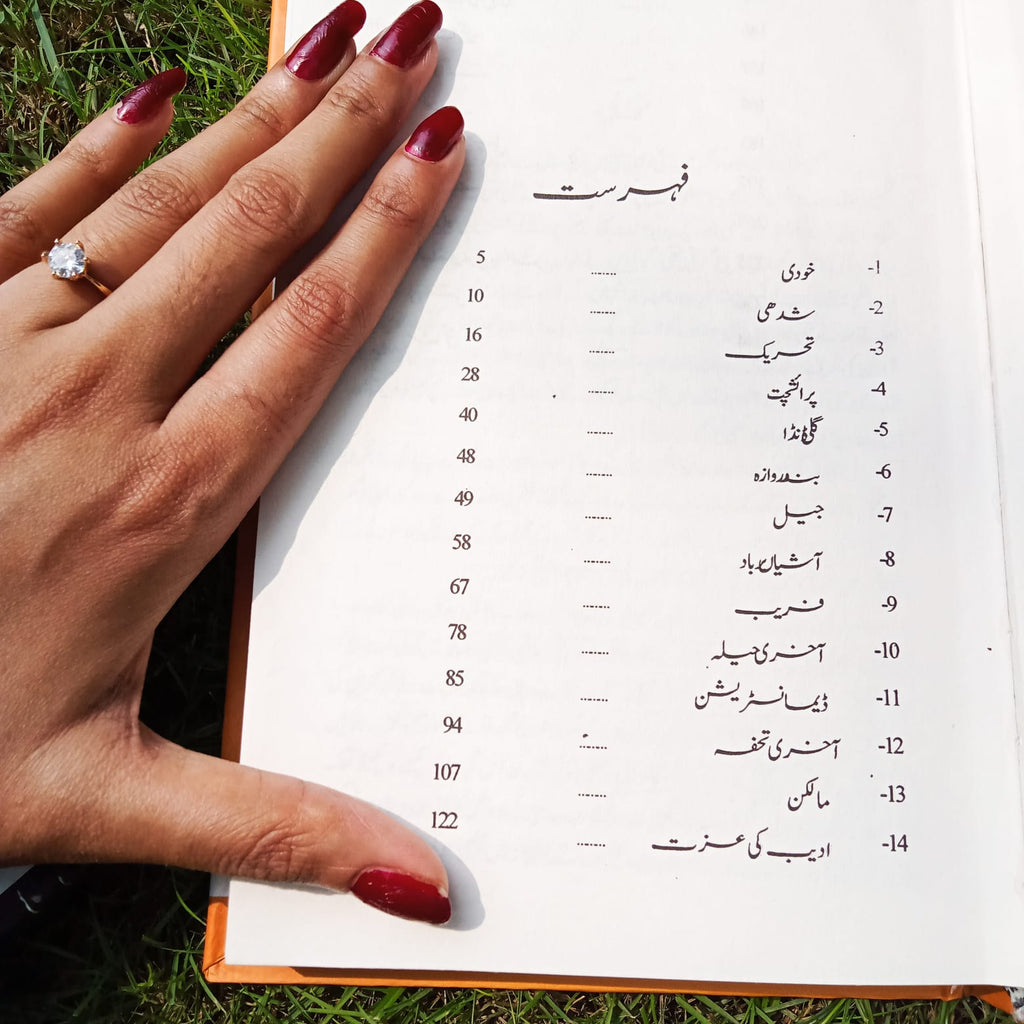 فہرست
-1 خودی ........ 5
-2 شدھی ........ 10
-3 تحریک ........ 16
-4 پرائشچت ........ 28
-5 گلی ڈنڈا ........ 40
-6 بند دروازہ ........ 48
-7 جیل ........ 49
-8 آشیاں برباد ........ 58
-9 فریب ........ 67
-10 آخری حیلہ ........ 78
-11 ڈیمانسٹریشن ........ 85
-12 آخری تحفہ ........ 94
-13 مالکن ........ 107
-14 ادیب کی عزت ........ 122